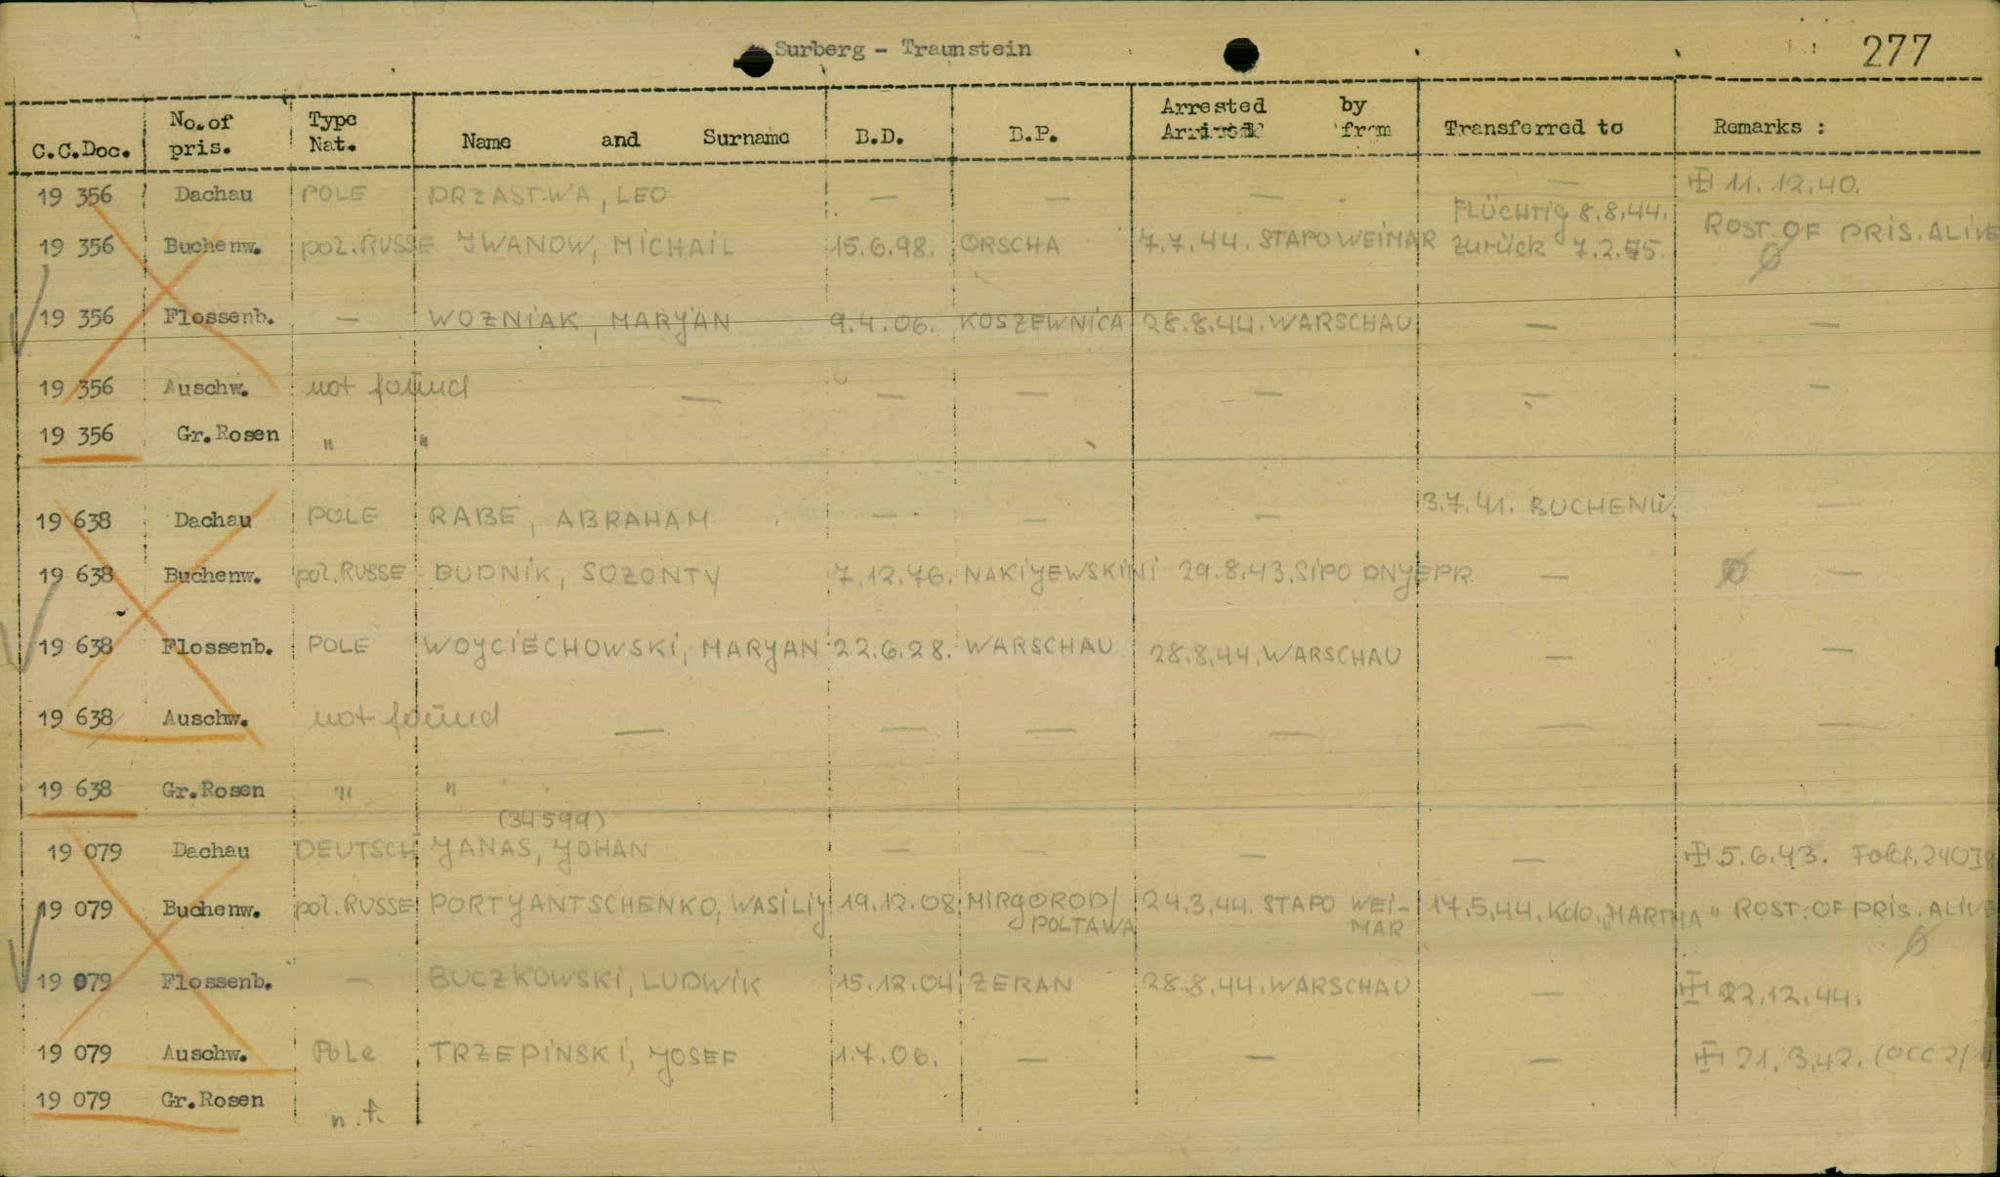 Surberg - Traunstein
277
C.C.Doc. No.of pris. Type Nat. Name and Surname B.D. B.P. Arrested by Arrived from Transferred to Remarks :
19 356 Dachau POLE DRZASTWA, LEO — — — — 11.12.40.
19 356 Buchenw. pol.RUSSE JWANOW, MICHAIL 15.6.98. ORSCHA 7.7.44. STAPO WEIMAR FLÜCHTIG 8.8.44. zurück 7.2.45. ROST.OF PRIS.ALIVE
19 356 Flossenb. — WOZNIAK, MARYAN 9.4.06. KOSZEWNICA 28.8.44. WARSCHAU — —
19 356 Auschw. not found — — — — — —
19 356 Gr.Rosen " "
19 638 Dachau POLE RABE, ABRAHAM — — — 3.7.41. BUCHENW. —
19 638 Buchenw. pol.RUSSE BUDNIK, SOZONTY 7.12.76. NAKIYEWSKINI 29.8.43.SIPO DNYEPR. — —
19 638 Flossenb. POLE WOYCIECHOWSKI, MARYAN 22.6.28. WARSCHAU 28.8.44.WARSCHAU — —
19 638 Auschw. not found — — — — — —
19 638 Gr.Rosen " "
(34599)
19 079 Dachau DEUTSCH YANAS, YOHAN — — — — 5.6.43.
19 079 Buchenw. pol.RUSSE PORTYANTSCHENKO, WASILIY 19.12.08. MIRGOROD/ 24.3.44. STAPO WEI- 17.5.44. Kdo."MARTHA" ROST.OF PRIS.ALIVE
POLTAWA MAR
19 079 Flossenb. — BUCZKOWSKI, LUDWIK 15.12.04. ZERAN 28.8.44. WARSCHAU — 22.12.44.
19 079 Auschw. Pole TRZEPINSKI, YOSEF 1.7.06. — — — 21.3.42. (OCC 2/
19 079 Gr.Rosen n.f.